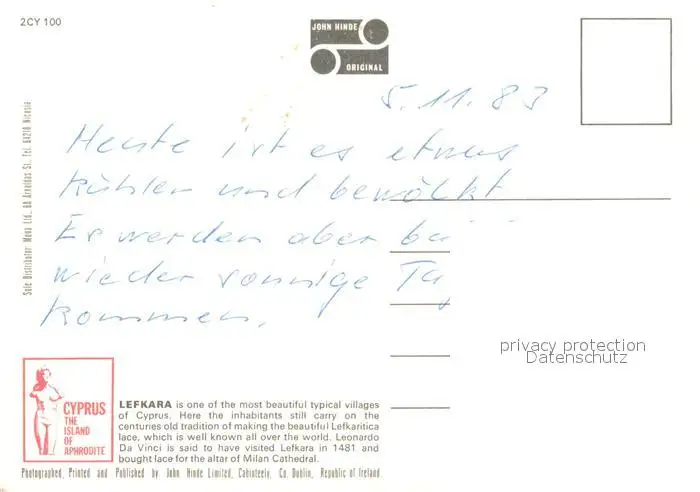 2CY 100
JOHN HINDE
ORIGINAL
5.11.83
Heute ist es etwas
kühler und bewölkt
Es werden aber
wieder sonnige
kommen.
Sole Distributor: Mona Ltd.,
privacy protection
Datenschutz
CYPRUS
THE
ISLAND
OF
APHRODITE
LEFKARA is one of the most beautiful typical villages
of Cyprus. Here the inhabitants still carry on the
centuries old tradition of making the beautiful Lefkaritica
lace, which is well known all over the world. Leonardo
Da Vinci is said to have visited Lefkara in 1481 and
bought lace for the altar of Milan Cathedral.
Photographed, Printed and Published by John Hinde Limited, Cabinteely, Co. Dublin, Republic of Ireland.